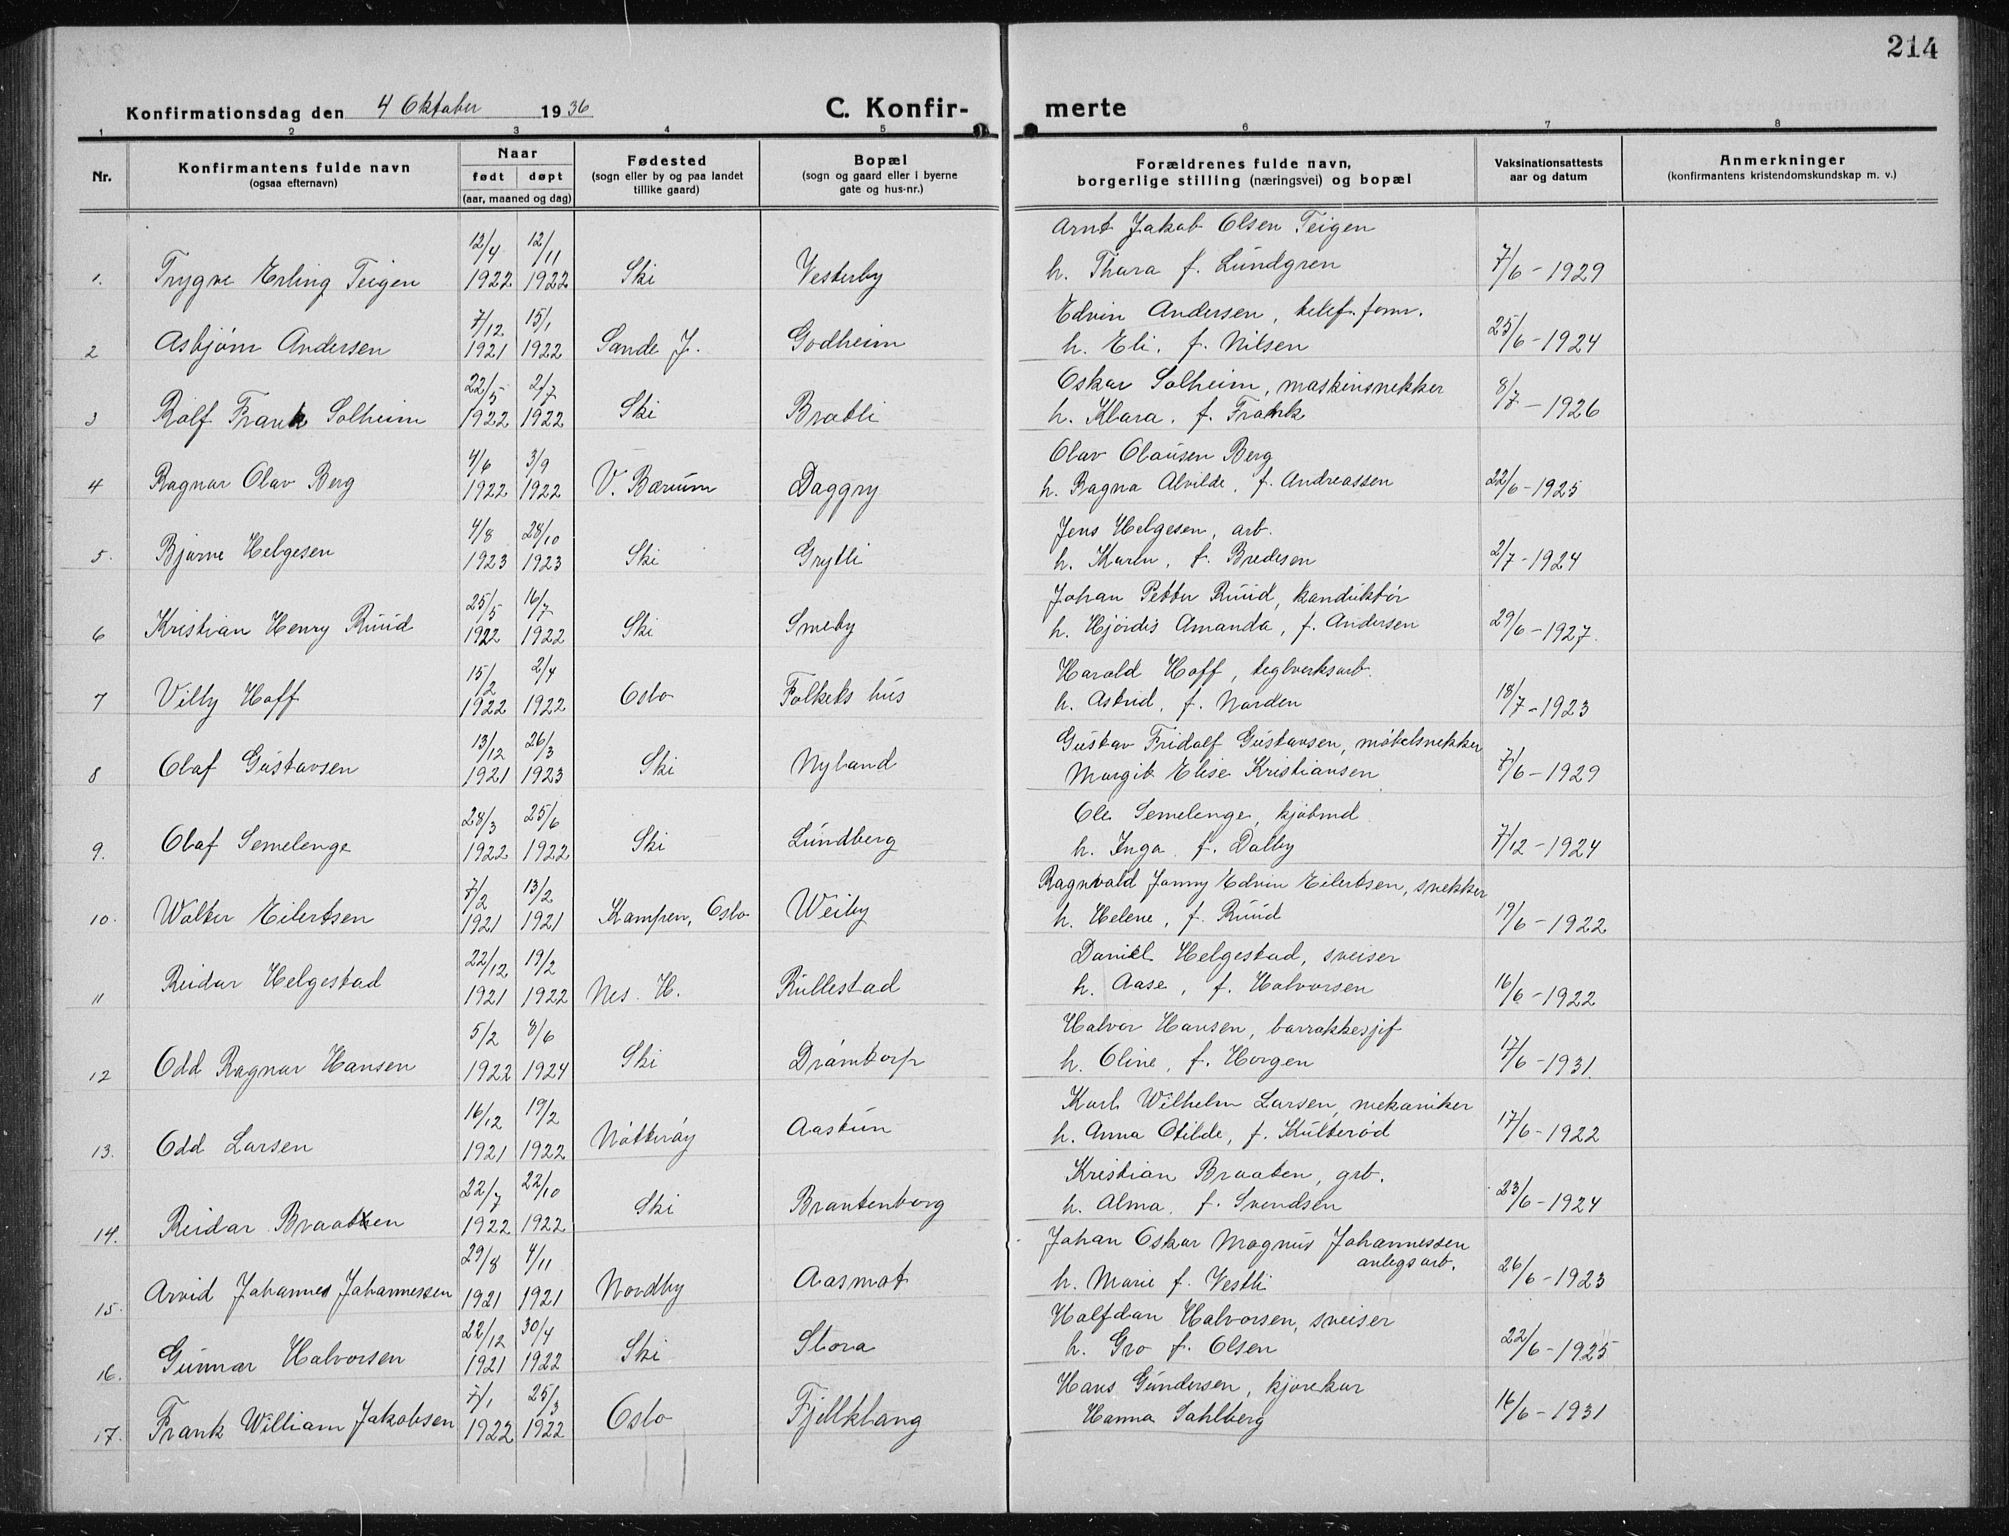 214
Konfirmationsdag den 4 Oktober 1936
C. Konfir- merte
1 2 3 4 5 6 7 8
Nr.
Konfirmantens fulde navn
(ogsaa efternavn)
Naar
født døpt
(aar, maaned og dag)
Fødested
(sogn eller by og paa landet
tillike gaard)
Bopæl
(sogn og gaard eller i byerne
gate og hus-nr.)
Forældrenes fulde navn,
borgerlige stilling (næringsvei) og bopæl
Vaksinationsattests
aar og datum
Anmerkninger
(konfirmantens kristendomskundskap m. v.)
12/4 12/11 Arnt Jakob Olsen Teigen
1. Trygve Erling Teigen 1922 1922 Ski Vesterby h. Thora f. Lundgren 7/6-1929
7/12 15/1 Edvin Andersen, telef. form.
2 Asbjørn Andersen 1921 1922 Sande J. Godheim h. Eli, f. Nilsen 25/6-1924
22/5 2/7 Oskar Solheim, maskinsnekker
3 Rolf Frank Solheim 1922 1922 Ski Bratli h. Klara, f. Frank 8/7-1926
4/6 3/9 Olav Olausen Berg
4 Ragnar Olav Berg 1922 1922 V. Bærum Daggry h. Ragna Alvilde, f. Andreassen 22/6-1925
4/8 28/10 Jens Helgesen, arb.
5. Bjarne Helgesen 1923 1923 Ski Grytli h. Karen, f. Bredesen 2/7-1924
25/5 16/7 Johan Petter Ruud, konduktør
6 Kristian Henry Ruud 1922 1922 Ski Smeby h. Hjördis Amanda, f. Andersen 29/6-1927.
15/2 2/4 Harald Hoff, teglverksarb.
7 Villy Hoff 1922 1922 Oslo Folkets hus h. Astrid, f. Norden 18/7-1923
13/12 26/3 Gustav Fridolf Gustavsen, møbelsnekker
8 Olaf Gustavsen 1921 1923 Ski Nyland Margit Elise Kristiansen 7/6-1929
28/3 25/6 Ole Semelenge, kjøbmd
9. Olaf Semelenge 1922 1922 Ski Lundberg h. Inga f. Dalby 7/12-1924
7/2 13/2 Ragnvald Jonny Edvin Eilertsen, snekker
10. Walter Eilertsen 1921 1921 Kampen, Oslo Weiby h. Helene, f. Ruud 19/6-1922
22/12 19/2 Daniel Helgestad, sveiser
11 Reidar Helgestad 1921 1922 Nes. H. Rullestad h. Aase, f. Halvorsen 16/6-1922
5/2 8/6 Halvor Hansen, barrakkesjef
12 Odd Ragnar Hansen 1922 1924 Ski Drømtorp h. Oline, f. Horgen 17/6-1931.
16/12 19/2 Karl Wilhelm Larsen, mekaniker
13. Odd Larsen 1921 1922 Nøtterøy Aastun h. Anna Otilde, f. Kulterød 17/6-1922
22/7 22/10 Kristian Braaten, grb.
14. Reidar Braaten 1922 1922 Ski Brantenborg h. Alma, f. Svendsen 23/6-1924
29/8 4/11 Johan Oskar Magnus Johannessen
anlegsarb.
15. Arvid Johannes Johannessen 1921 1921 Nordby Aasmot h. Marie f. Vestli 26/6-1923
22/12 30/4 Halfdan Halvorsen, sveiser
16. Gunnar Halvorsen 1921 1922 Ski Stora h. Gro f. Olsen 22/6-1925
7/1 25/3 Hans Gundersen, kjørekar
17. Frank William Jakobsen 1922 1922 Oslo Fjellklang Hanna Sahlberg 16/6-1931